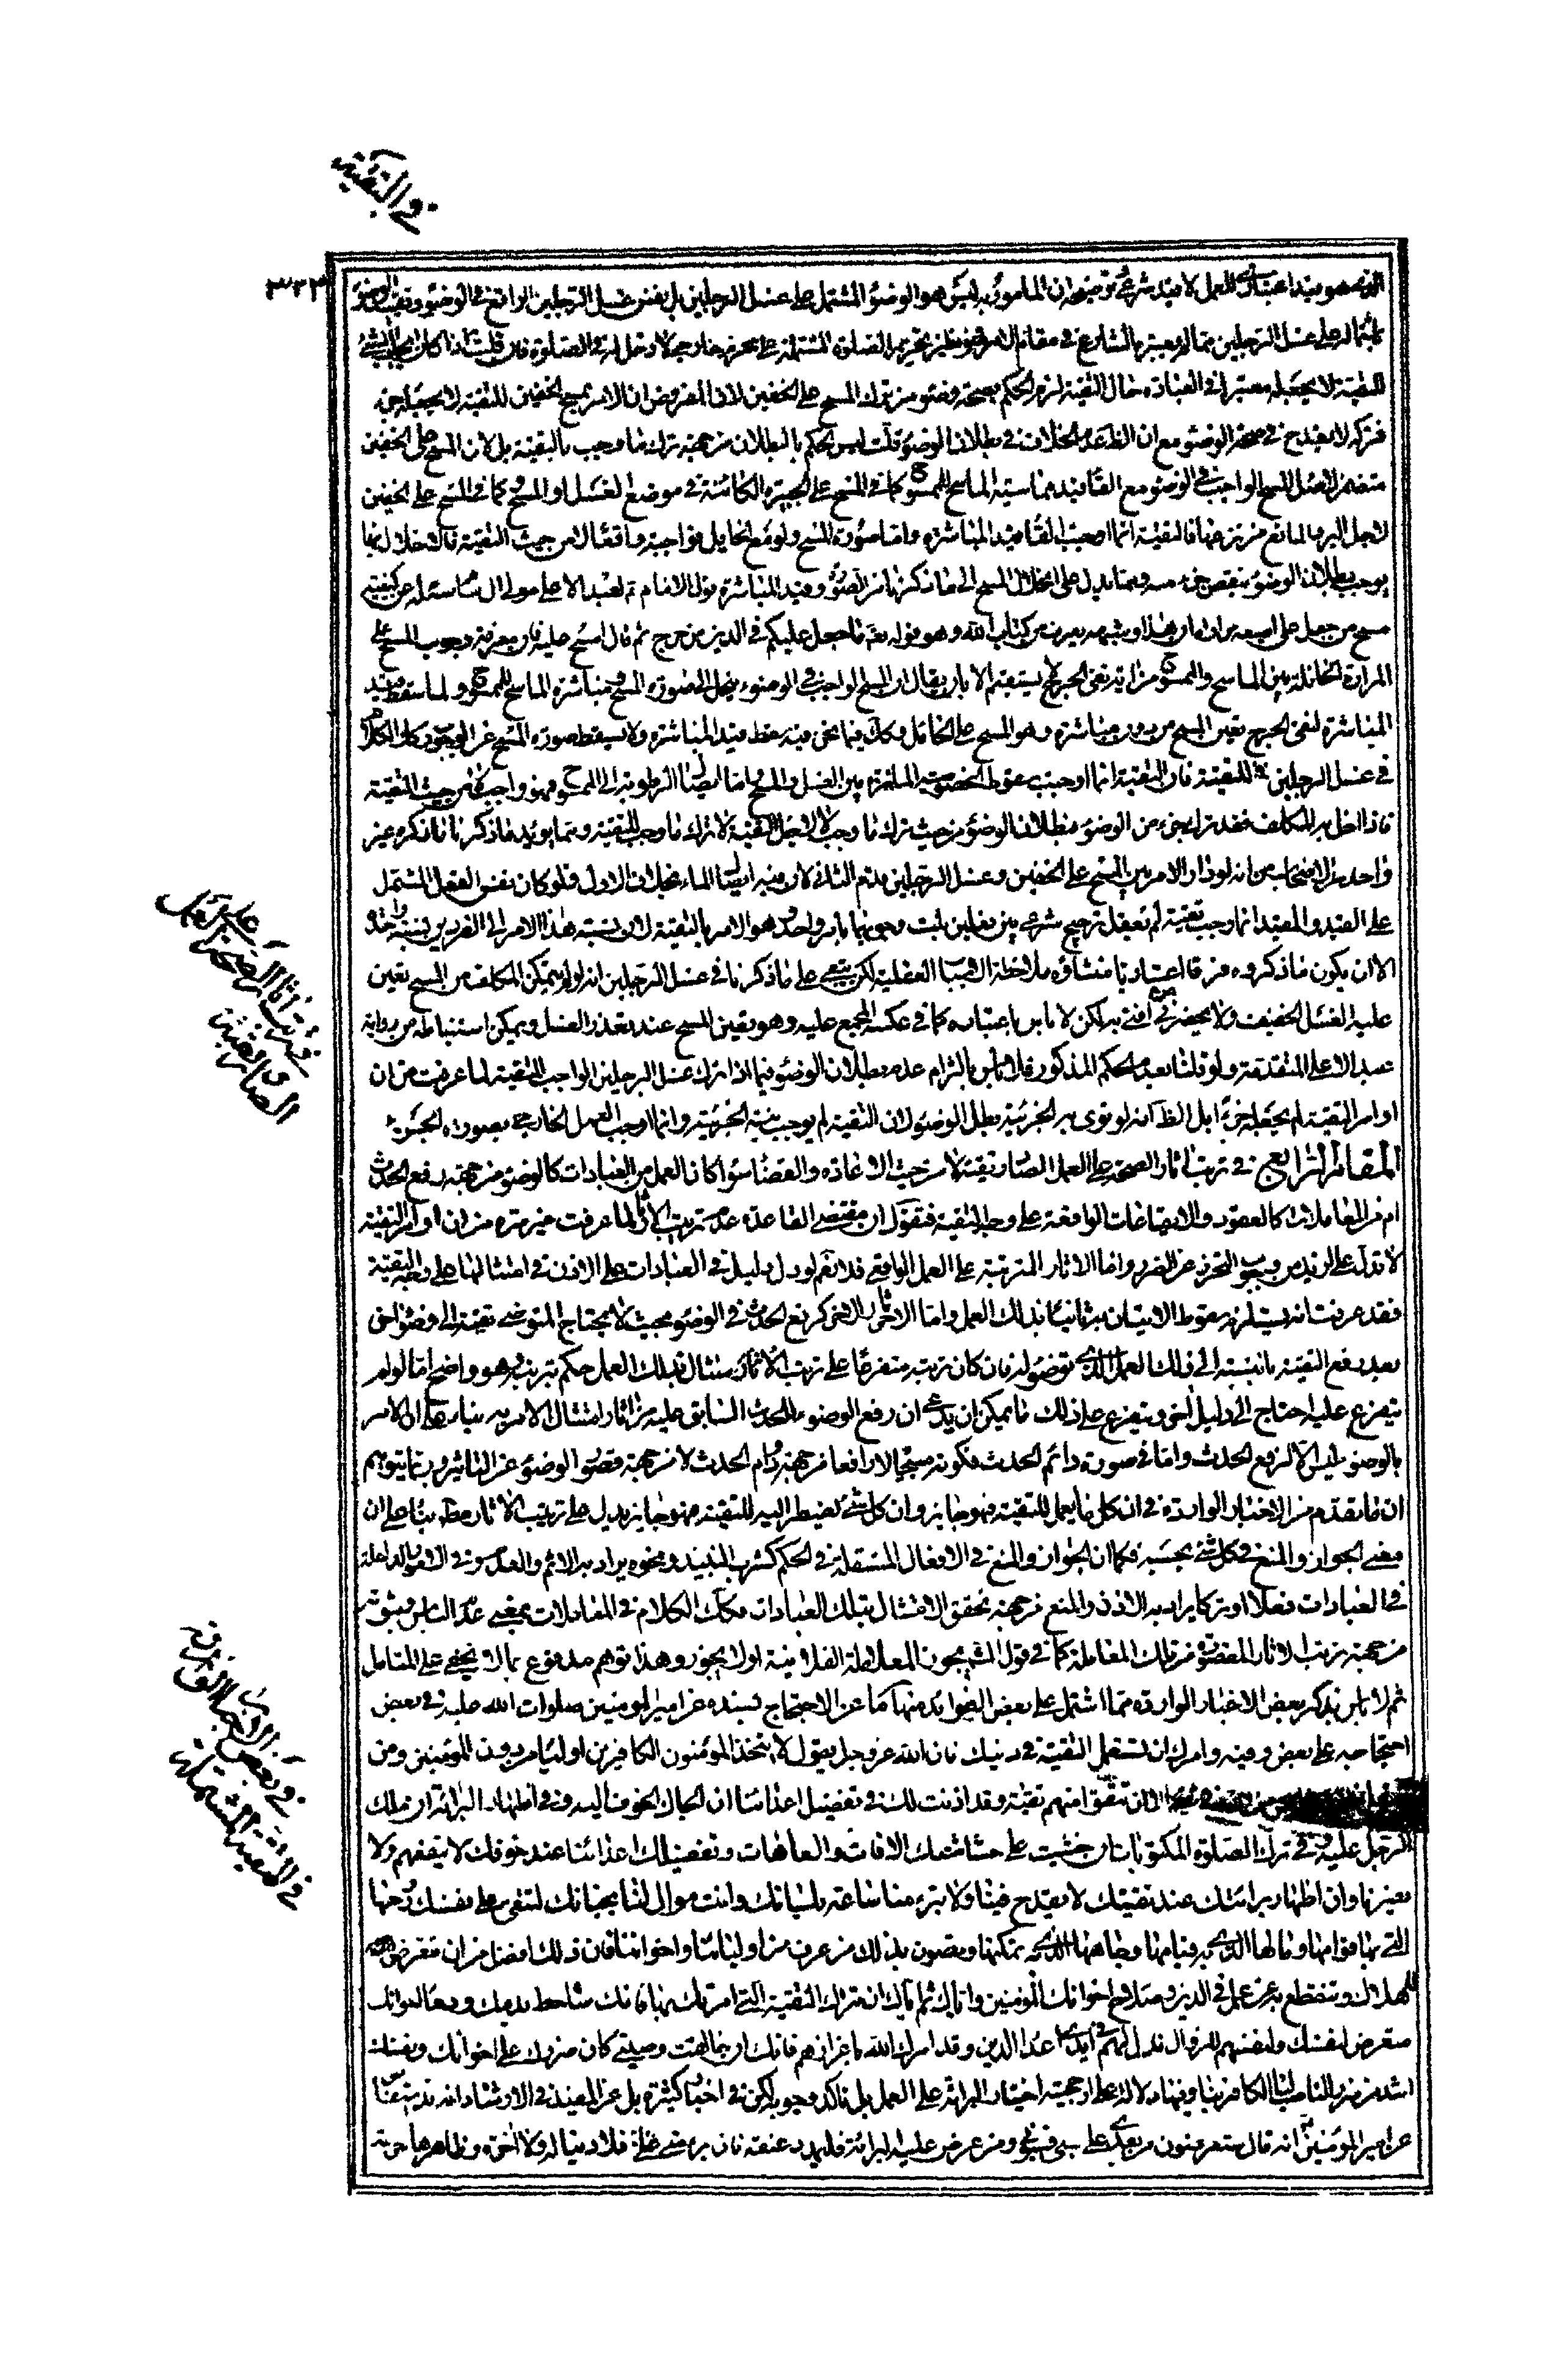 في التقية
٣٢٣
الذي هو قيد اعتباري للعمل لا قيد شرعي توضيحه ان المامور به ليس هو الوضوء المشتمل على غسل الرجلين بل نفس غسل الرجلين الواقع في الوضوء وتقييد الوضوء
باشتماله على غسل الرجلين مما لم يعتبره الشارع في مقام الامر فهو نظير تحريم الصلوة المشتملة على محرم خارجي لا دخل له في الصلوة فان قلت اذا كان ايجاب الشيء
للتقية لا يجعله معتبرا في العبادة حال التقية لزم الحكم بصحة وضوء من ترك المسح على الخفين لان المفروض ان الامر بمسح الخفين للتقية لا يجعله جزء
فتركه لا يقدح في صحة الوضوء مع ان الظ عدم الخلاف في بطلان الوضوء قلت ليس الحكم بالبطلان من جهة ترك ما وجب بالتقية بل لان المسح على الخفين
متضمن لاصل المسح الواجب في الوضوء مع الغاء قيد مماسية الماسح للممسوح كما في المسح على الجبيرة الكائنة في موضع الغسل او المسح وكما في المسح على الخفين
لاجل البرد المانع من نزعهما فالتقية انما اوجبت الغاء قيد المباشرة واما صورة المسح ولو مع الحايل فواجبة واقعا لا من حيث التقية فالاخلال بها
يوجب بطلان الوضوء بنقص جزء منه ومما يدل على انحلال المسح الى ما ذكرنا من الصورة وقيد المباشرة قول الامام ع لعبد الاعلى مولى ال سام سئله عن كيفية
مسح من جعل على اصبعه مرارة ان هذا وشبهه يعرف من كتاب الله وهو قوله تعالى ما جعل عليكم في الدين من حرج ثم قال امسح عليه فان معرفة وجوب المسح على
المرارة الحائلة بين الماسح والممسوح من اية نفي الحرج لا يستقيم الا بان يقال ان المسح الواجب في الوضوء ينحل الى صورة المسح ومباشرة الماسح للممسوح ولما سقط قيد
المباشرة لنفي الحرج تعين المسح من دون مباشرة وهو المسح على الحائل وكك فيما نحن فيه سقط قيد المباشرة ولا يسقط صورة المسح عن الوجوب وكك الكلام
في غسل الرجلين للتقية فان التقية انما اوجبت سقوط الخصوصية المائزة بين الغسل والمسح واما ايصال الرطوبة الى الممسوح فهو واجب لا من حيث التقية
فاذا اخل به المكلف فقد ترك جزء من الوضوء فبطلان الوضوء من حيث ترك ما وجب لا لاجل التقية لا ترك ما وجب للتقية ومما يؤيد ما ذكرنا ما ذكره غير
واحد من الاصحاب من انه لو دار الامر بين المسح على الخفين وغسل الرجلين قدم الثاني لان فيه ايصال الماء بخلاف الاول فلو كان نفس الفعل المشتمل
على القيد والمقيد انما وجب تقية لم تعقل ترجيح شرعي بين فعلين ثبت وجوبهما بامر واحد وهو الامر بالتقية لان نسبة هذا الامر الى الفردين نسبة واحدة
الا ان يكون ما ذكروه فرقا اعتباريا منشاؤه ملاحظة الاسباب العقلية لكن يبقى على ما ذكرنا في غسل الرجلين انه لو لم يتمكن المكلف من المسح تعين
عليه الغسل الخفيف ولا يحضرني من افتى به لكن لا باس باعتباره كما في عكسه المجمع عليه وهو تعين المسح عند تعذر الغسل ويمكن استنباطه من رواية
عبد الاعلى المتقدمة ولو قلنا بعدم الحكم المذكور فلا باس بالتزام عدم بطلان الوضوء فيما اذا ترك غسل الرجلين الواجب للتقية لما عرفت من ان
اوامر التقية لم تجعله جزءا بل الظ انه لو نوى به الجزئية بطل الوضوء لان التقية لم يوجب نية الجزئية وانما اوجب العمل الخارجي بصورة الجزء
المقام الرابع في ترتب اثار الصحة على العمل الصادر تقية لا من حيث الاعادة والقضاء سواء كان العمل من العبادات كالوضوء من جهة رفع الحدث
ام من المعاملات كالعقود والايقاعات الواقعة على وجه التقية فنقول ان مقتضى القاعدة عدم ترتب الاثار لما عرفت غير مرة من ان اوامر التقية
لا تدل على ازيد من وجوب التحرز عن الضرر واما الاثار المترتبة على العمل الواقعي فلا نعم لو دل دليل في العبادات على الاذن في امتثالها على وجه التقية
فقد عرفت انه يستلزم سقوط الاتيان به ثانيا بذلك العمل واما الاثار الاخر كرفع الحدث في الوضوء بحيث لا يحتاج المتوضي تقية الى وضوء اخر
بعد رفع التقية بالنسبة الى ذلك العمل الذي توضأ له فان كان ترتبه متفرعا على ترتب الامتثال بذلك العمل حكم بترتبه وهو واضح اما لو لم
يتفرع عليه احتاج الى دليل اخر ويتفرع على ذلك ما يمكن ان يدعي ان رفع الوضوء للحدث السابق عليه من اثار امتثال الامر به بناء على ان الامر
بالوضوء ليس الا لرفع الحدث واما في صورة دائم الحدث فكونه مبيحا لا رافعا من جهة دوام الحدث لا من جهة قصور الوضوء عن التاثير وربما يتوهم
ان ما تقدم من الاخبار الواردة في ان كل ما يعمل للتقية فهو جايز وان كل شيء يضطر اليه للتقية فهو جايز يدل على ترتيب الاثار مط بناء على ان
معنى الجواز والمنع في كل شيء بحسبه فكما ان الجواز والمنع في الافعال المستقلة في الحكم كشرب النبيذ ونحوه يراد به الاثم والعدم وفي الامور الداخلة
في العبادات فعلا او تركا يراد به الاذن والمنع من جهة تحقق الامتثال بتلك العبادات فكك الكلام في المعاملات بمعنى عدم الباس وثبوته
من جهة ترتب الاثار المقصودة من تلك المعاملة كما في قول الشارع يجوز المعاملة الفلانية او لا يجوز وهذا توهم مدفوع بما لا يخفى على المتامل
ثم لا باس بذكر بعض الاخبار الواردة مما اشتمل على بعض الفوائد منها ما عن الاحتجاج بسنده عن امير المومنين صلوات الله عليه في بعض
احتجاجه على بعض وفيه وامرك ان تستعمل التقية في دينك فان الله عز وجل يقول لا يتخذ المومنون الكافرين اولياء من دون المومنين ومن
الا ان تتقوا منهم تقية وقد اذنت لك في تفضيل اعدائنا ان الجاك الخوف اليه وفي اظهار البرائة ان حملك
الوجل عليه وفي ترك الصلوة المكتوبات ان خشيت على حشاشتك الافات والعاهات وتفضيلك اعدائنا عند خوفك لا ينفعهم ولا
يضرنا وان اظهار برائتك عند تقيتك لا يقدح فينا ولا تبرء منا ساعة بلسانك وانت موال لنا بجنانك لتبقى على نفسك روحها
التي بها قوامها ومالها الذي به قيامها وجاهها الذي به تمكنها وتصون بذلك من عرف من اوليائنا واخواننا فان ذلك افضل من ان تتعرض
للهلاك وتنقطع به عن عمل في الدين وصلاح اخوانك المومنين واياك ثم اياك ان تترك التقية التي امرتك بها فانك شاحط بدمك ودماء اخوانك
متعرض لنفسك ولنفسهم للزوال مذل لهم في ايدي اعداء الدين وقد امرك الله باعزازهم فانك ان خالفت وصيتي كان ضررك على اخوانك ونفسك
اشد من ضرر الناصب لنا الكافر بنا وفيها دلالة على ارجحية اختيار البرائة على العمل بل تاكد وجوبه لكن في اخبار كثيرة بل عن المفيد في الارشاد انه قد استفاض
عن امير المومنين ع انه قال ستعرضون من بعدي على سبي فسبوني ومن عرض عليه البرائة فليمدد عنقه فان برء مني فلا دنيا له ولا اخرة وظاهرها حرمة
في ترتب اثار الصحة على العمل
الصادر تقية
في بعض الاخبار الواردة
في التقية المشتملة